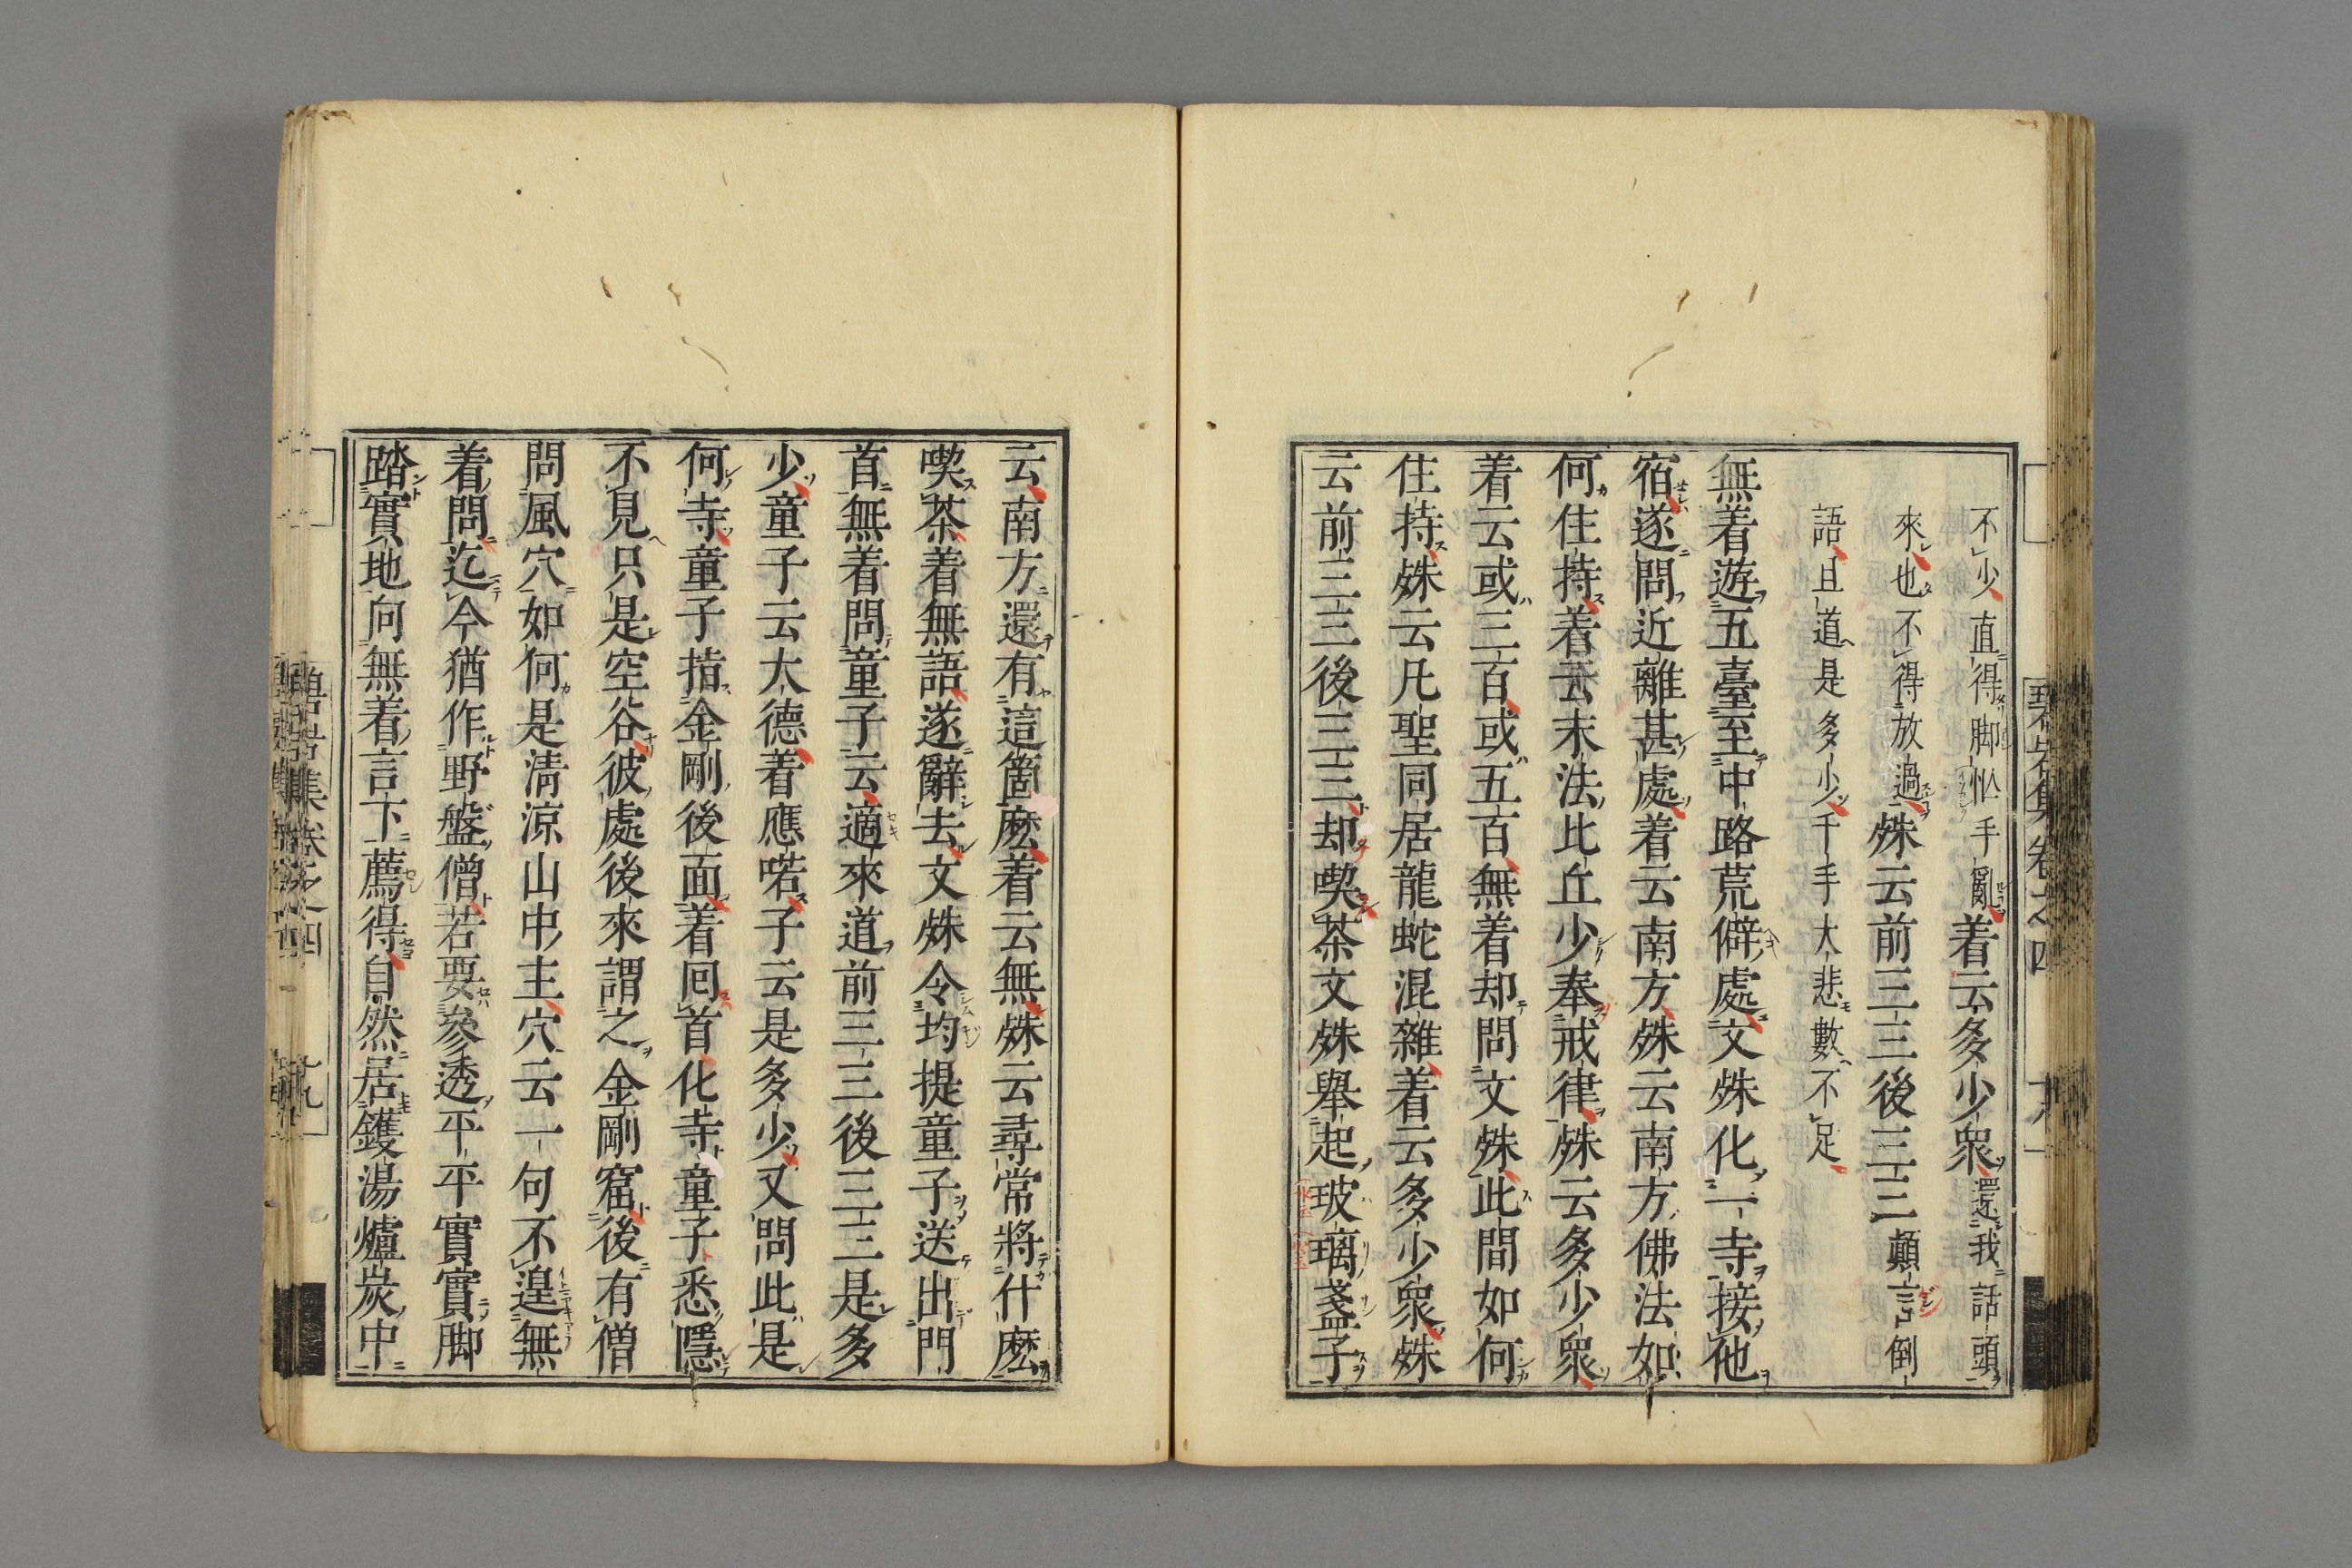 不少直得脚忙手亂着云多少衆還我話頭
來也不得放過殊云前三三後三三顛言倒
語且道是多少千手大悲數不足
無着遊五臺至中路荒僻處文殊化一寺接他
宿遂問近離甚處着云南方殊云南方佛法如
何住持着云末法比丘少奉戒律殊云多少衆
着云或三百或五百無着却問文殊此間如何
住持殊云凡聖同居龍蛇混雜着云多少衆殊
云前三三後三三却喫茶文殊舉起玻璃盞子
云南方還有這箇麽着云無殊云尋常將什麽
喫茶着無語遂辭去文殊令均提童子送出門
首無着問童子云適來道前三三後三三是多
少童子云大德着應喏子云是多少又問此是
何寺童子指金剛後面着囘首化寺童子悉隱
不見只是空谷彼處後來謂之金剛窟後有僧
問風穴如何是淸涼山中主穴云一句不遑無
着問迄今猶作野盤僧若要參透平平實實脚
踏實地向無着言下薦得自然居鑊湯爐炭中
碧岩集卷之四